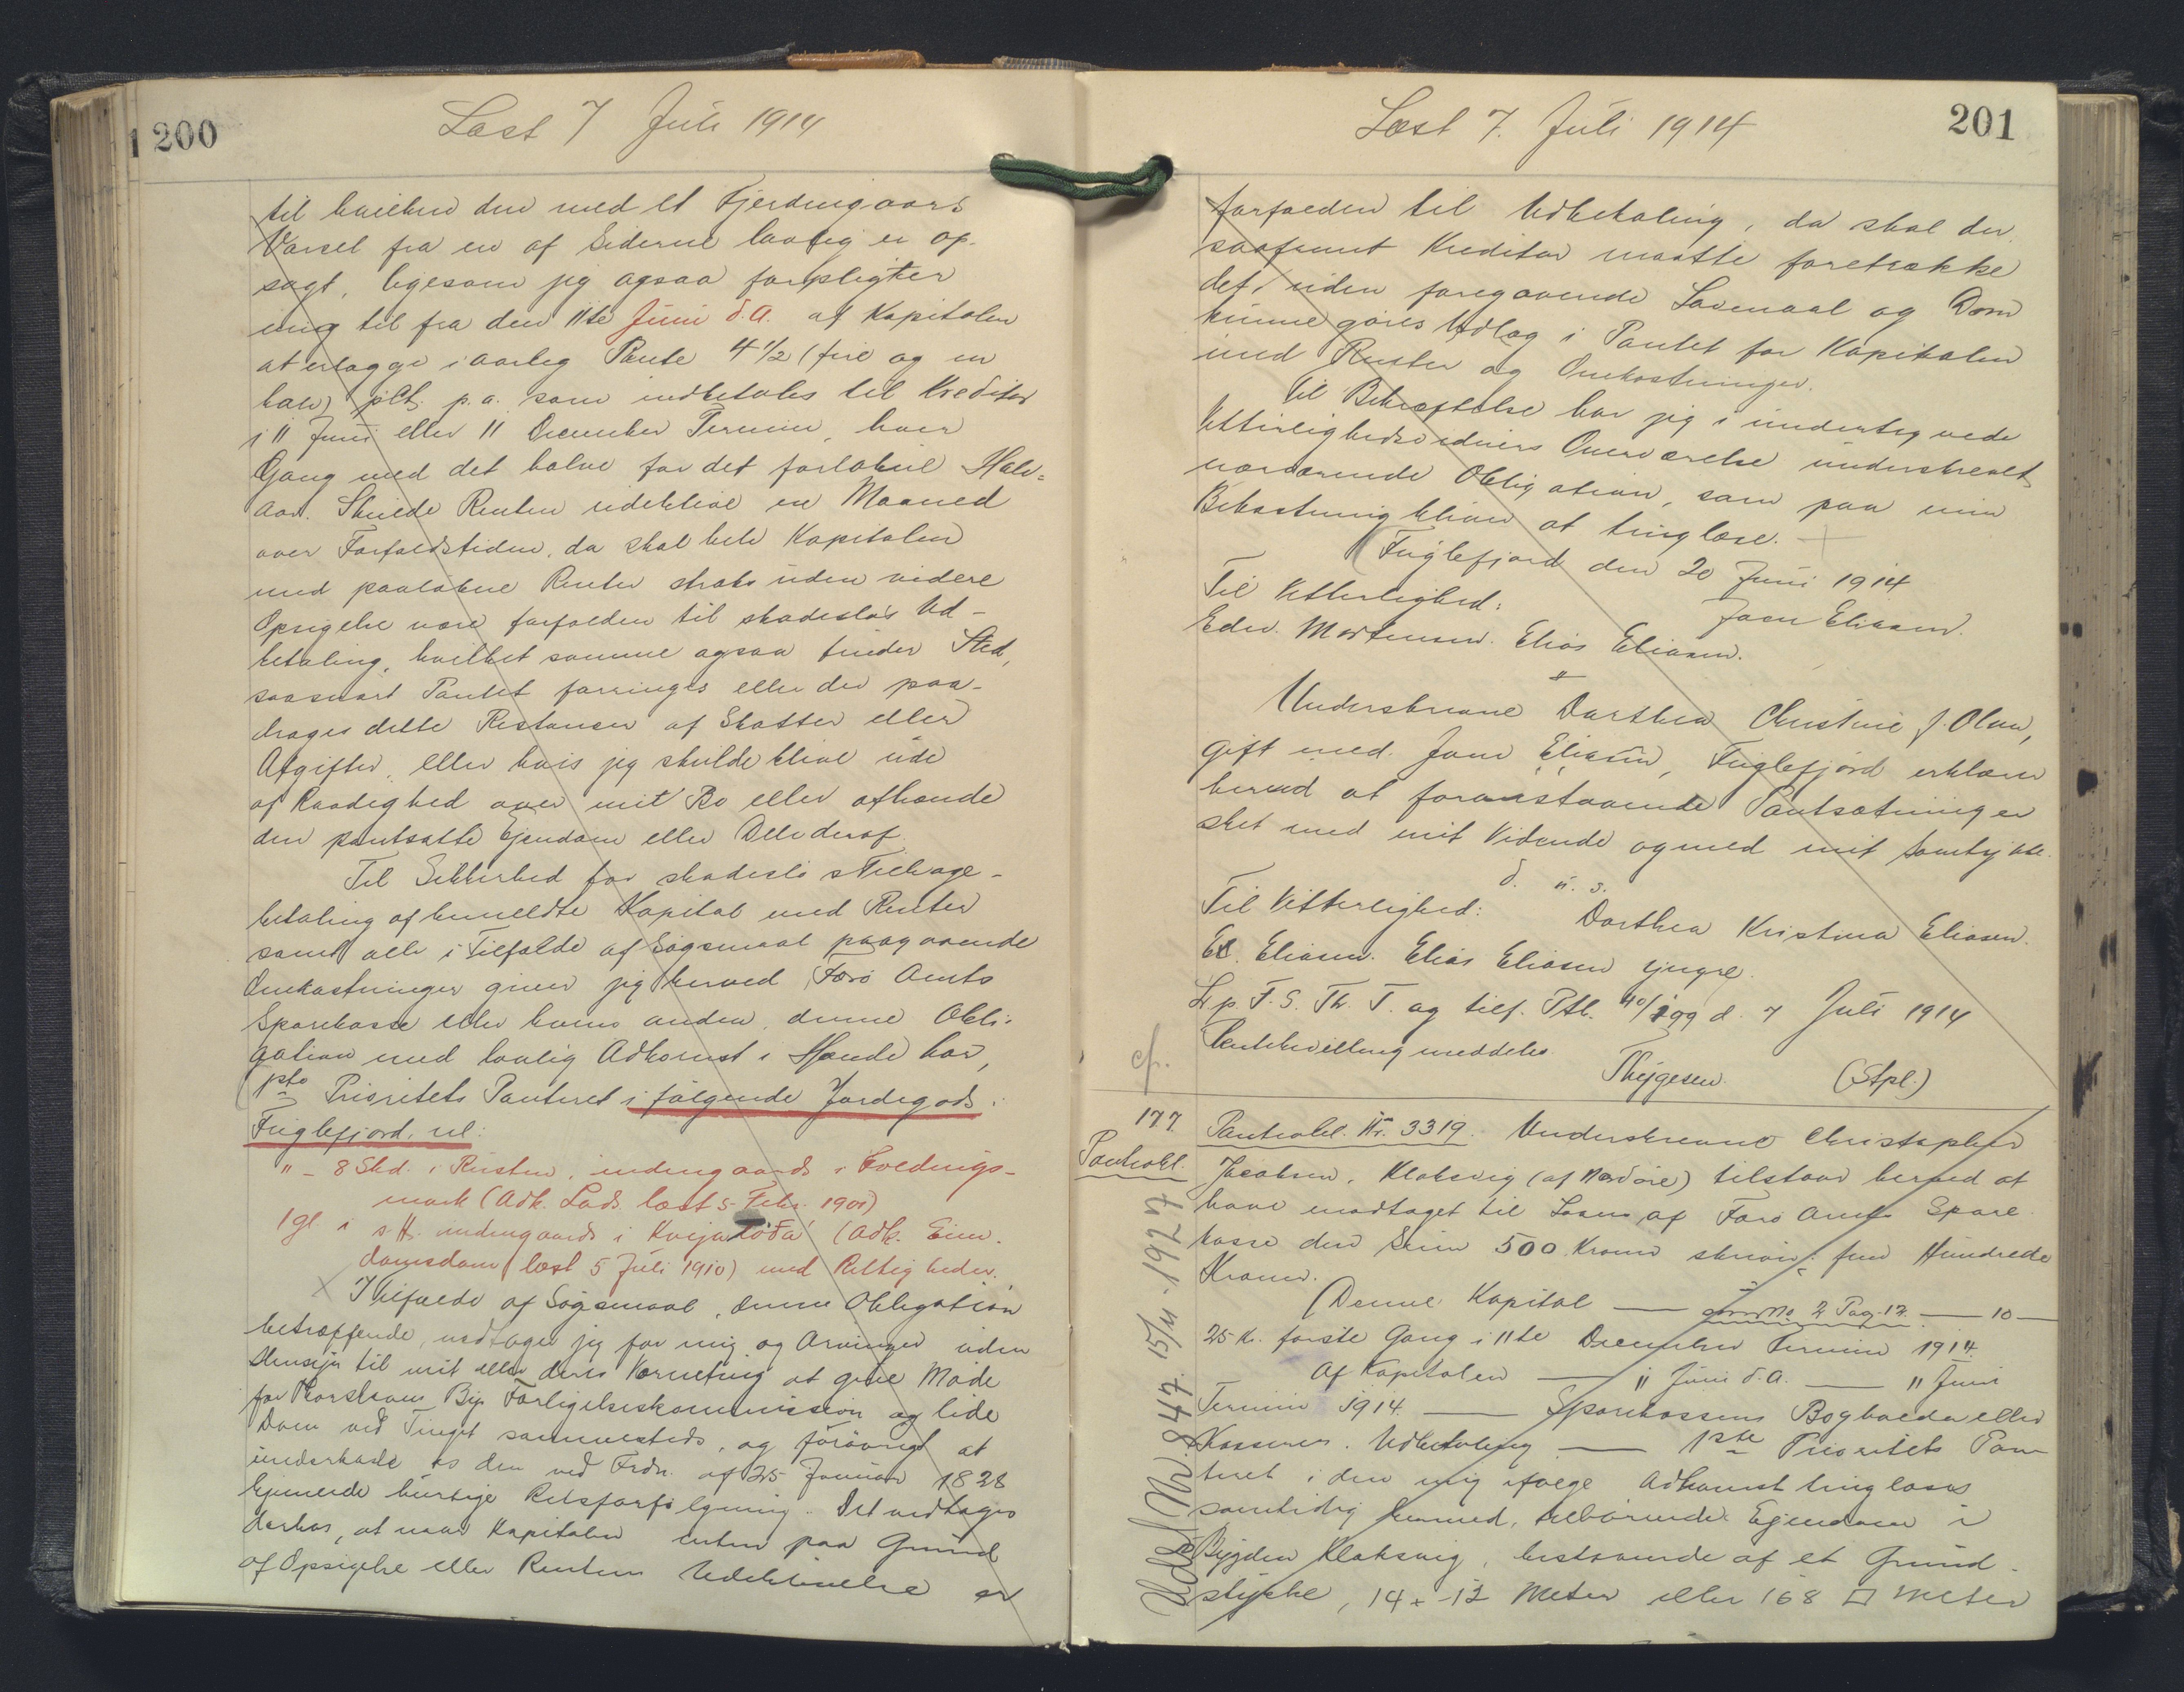 200
Læst 7 Juli 1914
til hvilken den med et Fjerdingaars
Varsel fra en af Siderne lovlig er op-
sagt, ligesom jeg ogsaa forpligter
mig til fra den 11te Juni d.A. af Kapitalen
at erlægge i aarlig Rente 4 1/2 (fire og en
halv) pCt. p.a. som indbetales til Kreditor
i 11 Juni eller 11 December Termin, hver
Gang med det halve for det forløbne Halv-
aar. Skulde Renten udeblive en Maaned
over Forfaldstiden, da skal hele Kapitalen
med paaløbne Renter straks uden videre
Opsigelse være forfalden til skadesløs Ud-
betaling, hvilket samme ogsaa finder Sted,
saasnart Pantet forringes eller der paa-
drages dette Restancer af Skatter eller
Afgifter, eller hvis jeg skulde blive ude
af Raadighed over mit Bo eller afhænde
den pantsatte Ejendom eller Dele deraf.
Til Sikkerhed for skadesløs Tilbage-
betaling af bemeldte Kapital med Renter
samt alle i Tilfælde af Søgsmaal paagaaende
Omkostninger giver jeg herved Færø Amts
Sparekasse eller hvem anden, denne Obli-
gation med lovlig Adkomst i Hænde har,
1ste Prioritets Panteret i følgende Jordegods i
Fuglefjord, nl:
" - 8 Skd. i Rusten, indengaards i Toldings-
mark (Adk. Lods. læst 5 Febr. 1901)
1 gl. i s. H. indengaards i Kvijatöða (Adk. Eien-
domsdom læst 5 Juli 1910) med Rettigheder.
I Tilfælde af Søgsmaal, denne Obligation
betræffende, vedtager jeg for mig og Arvinger uden
Hensyn til mit eller deres Værneting at give Møde
for Thorshavns Byes Forligelseskommission og lide
Dom ved Tinget sammesteds, og forøvrigt at
underkaste os den ved Frdn. af 25 Januar 1828
hjemlede hurtige Retsforfølgning. Det vedtages
derhos, at naar Kapitalen enten paa Grund
af Opsigelse eller Rentens Udeblivelse er
201
Læst 7. Juli 1914
forfalden til Udbetaling, da skal der
saafremt Kreditor maatte foretrække
det, uden foregaaende Lovmaal og Dom
kunne gøres Udlæg i Pantet for Kapitalen
med Renter og Omkostninger.
Til Bekræftelse har jeg i undertegnede
Vitterlighedsvidners Overværelse underskrevet
nærværende Obligation, som paa min
Bekostning bliver at tinglæse.
Fuglefjord den 20 Juni 1914
Til Vitterlighed:
Joen Eliasen.
Edv. Mortensen. Elias Eliasen.
Underskrevne Darthea Christine f. Olsen,
gift med Joen Eliasen, Fuglefjord erklærer
herved at foranstaaende Pantsætning er
sket med mit Vidende og med mit Samtykke.
d. u. s.
Til Vitterlighed:
Dorthea Kristina Eliasen.
El. Eliasen. Elias Eliasen yngre.
L. p. F. S. Th. T. og tilf. Ptb. 40/199 d. 7 Juli 1914
cf.
meddeles.
Thygesen. (Stpl.)
177.
Panteobl.
Panteobl. Nr. 3319. Underskrevne Christopher
Jacobsen, Klaksvig (af Nordøre) tilstaar herved at
have modtaget til Laans af Færø Amts Spare-
kasse den Sum 500 Kroner skriver: fem Hundrede
Kroner.
(Denne Kapital — No. 2 Pag. 17. — 10 —
25 Kr. første Gang i 11te December Termin 1914.
Af Kapitalen — 11 Juni d.A. — 11 Juni
Termin 1914. — Sparekassens Bogholder eller
Kasserer. Udbetaling — 1ste Prioritets Pan-
teret i den mig ifølge Adkomst tinglæses
samtidig hermed, tilhørende Ejendom i
Bygden Klaksvig, bestaaende af et Grund-
stykke, 14 x 12 Meter eller 168 □ Meter
Udsl. Nr 847. 15/11-1927